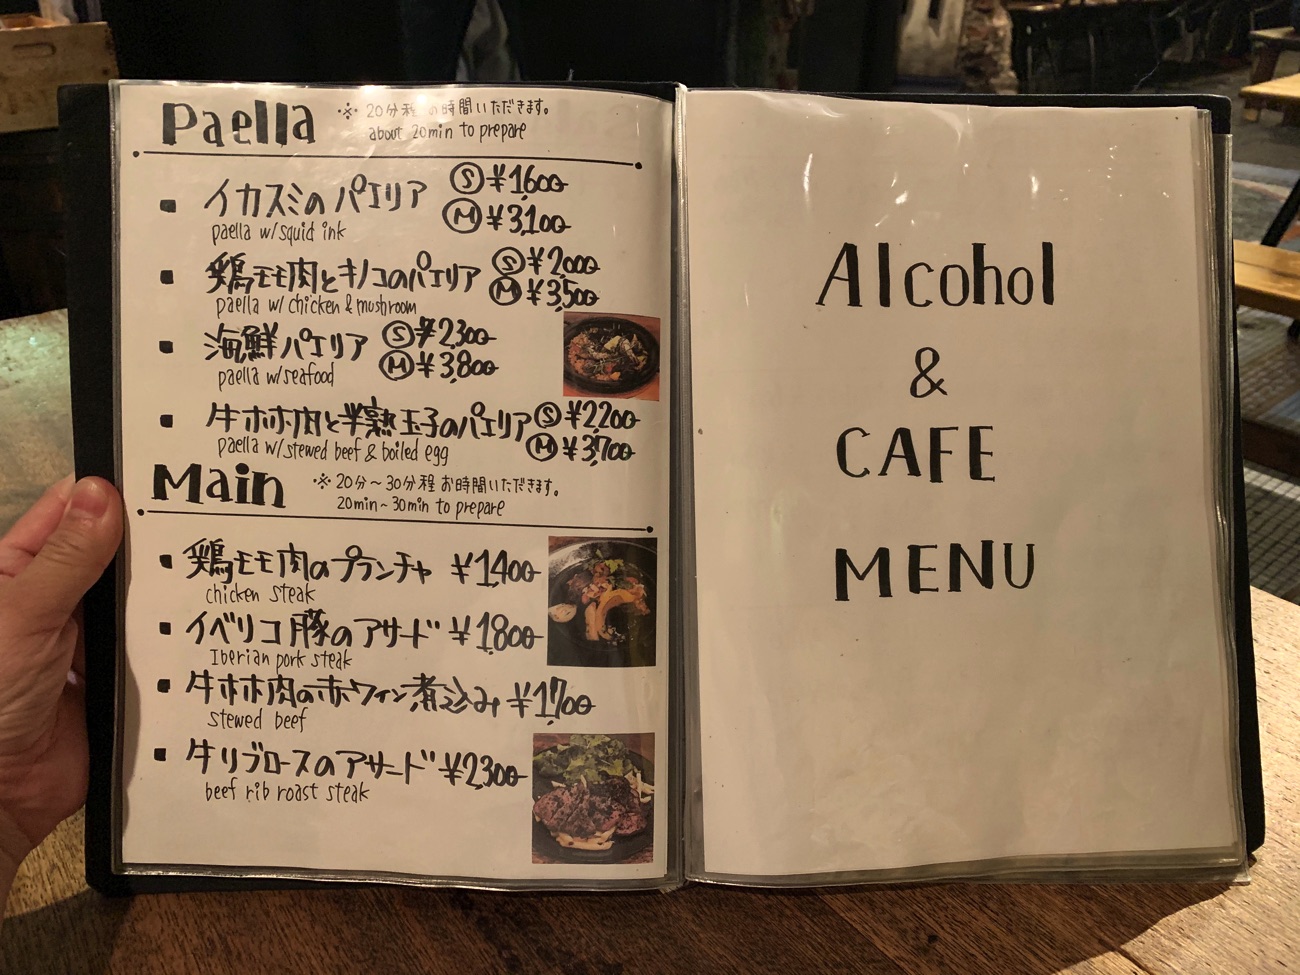 Paella
※ 20分程お時間いただきます。
about 20min to prepare
イカスミのパエリア Ⓢ ¥1,600
paella w/squid ink Ⓜ ¥3,100
鶏モモ肉とキノコのパエリア Ⓢ ¥2,000
paella w/ chicken & mushroom Ⓜ ¥3,500
海鮮パエリア Ⓢ ¥2,300
paella w/seafood Ⓜ ¥3,800
牛ホホ肉と半熟玉子のパエリア Ⓢ ¥2,200
paella w/stewed beef & boiled egg Ⓜ ¥3,700
Main
※ 20分～30分程お時間いただきます。
20min~30min to prepare
鶏モモ肉のプランチャ ¥1,400
chicken steak
イベリコ豚のアサード ¥1,800
Iberian pork steak
牛ホホ肉の赤ワイン煮込み ¥1,700
stewed beef
牛リブロースのアサード ¥2,300
beef rib roast steak
Alcohol
&
CAFE
MENU